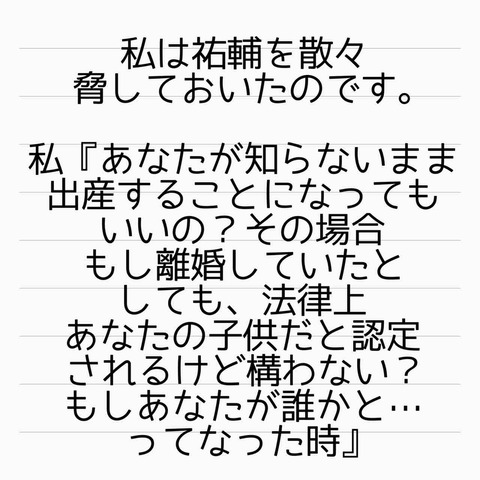 私は祐輔を散々
脅しておいたのです。
私『あなたが知らないまま
出産することになっても
いいの？その場合
もし離婚していたと
しても、法律上
あなたの子供だと認定
されるけど構わない？
もしあなたが誰かと…
ってなった時』